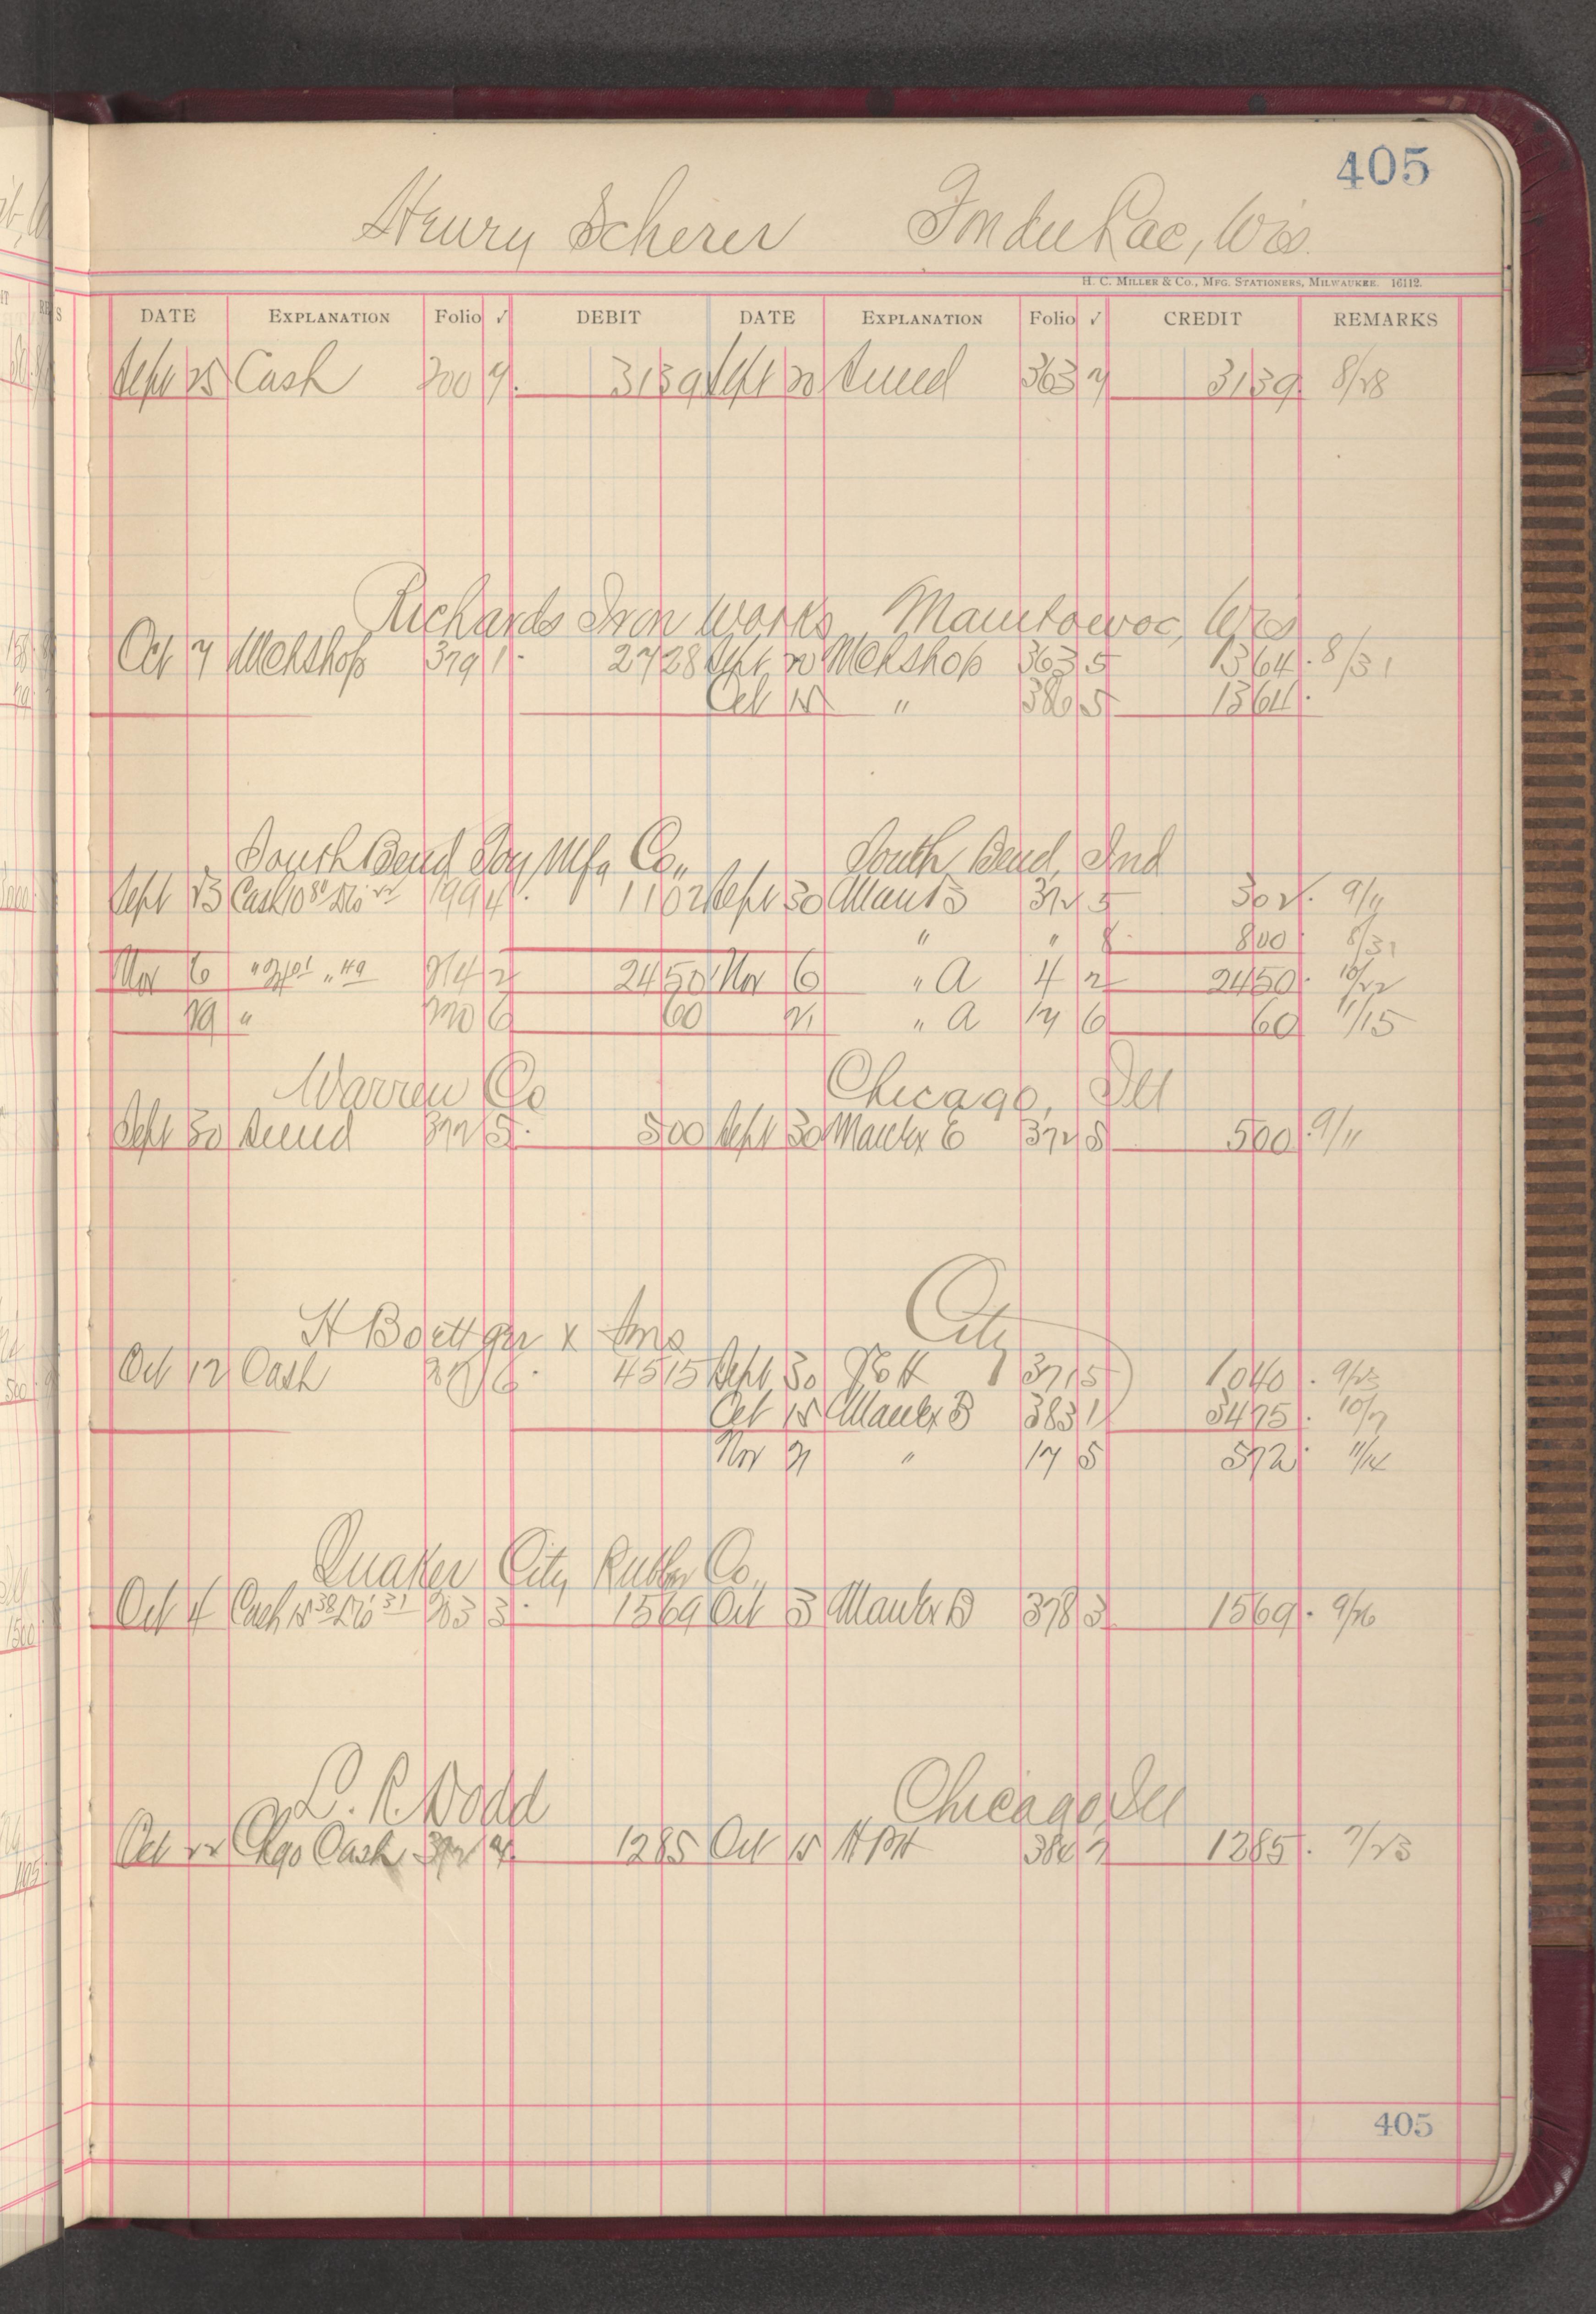 405
Henry Scherer Fon du Lac, Wis.
H. C. MILLER & CO., MFG. STATIONERS, MILWAUKEE. 16112.
DATE EXPLANATION Folio ✓ DEBIT DATE EXPLANATION Folio ✓ CREDIT REMARKS
Sept 25 Cash 200 7 3139 Sept 20 363 7 3139 8/28
Richards Iron Works Manitowoc, Wis
Oct 7 379 1 2728 Sept 20 363 5 1364 8/31
Oct 15 " 386 5 1364
South Bend Toy Mfg Co., South Bend, Ind
Sept 13 Cash 199 4 1102 Sept 30 372 5 302 9/11
" " 8 800 8/31
Nov 6 214 2 2450 Nov 6 " A 4 2 2450 10/22
29 " 220 6 60 21 " A 17 6 60 11/15
Warren Co Chicago, Ill
Sept 30 372 5 500 Sept 30 372 5 500 9/11
H Boettger & Sons City
Oct 12 Cash 6 4515 Sept 30 371 5 1040 9/23
Oct 15 383 1 3475 10/7
Nov 21 " 17 5 572 11/14
Quaker City Rubber Co.
Oct 4 Cash 203 3 1569 Oct 3 378 3 1569 9/26
L. R. Dodd Chicago, Ill
Oct 22 Chgo Cash 1285 Oct 15 1285 7/23
405